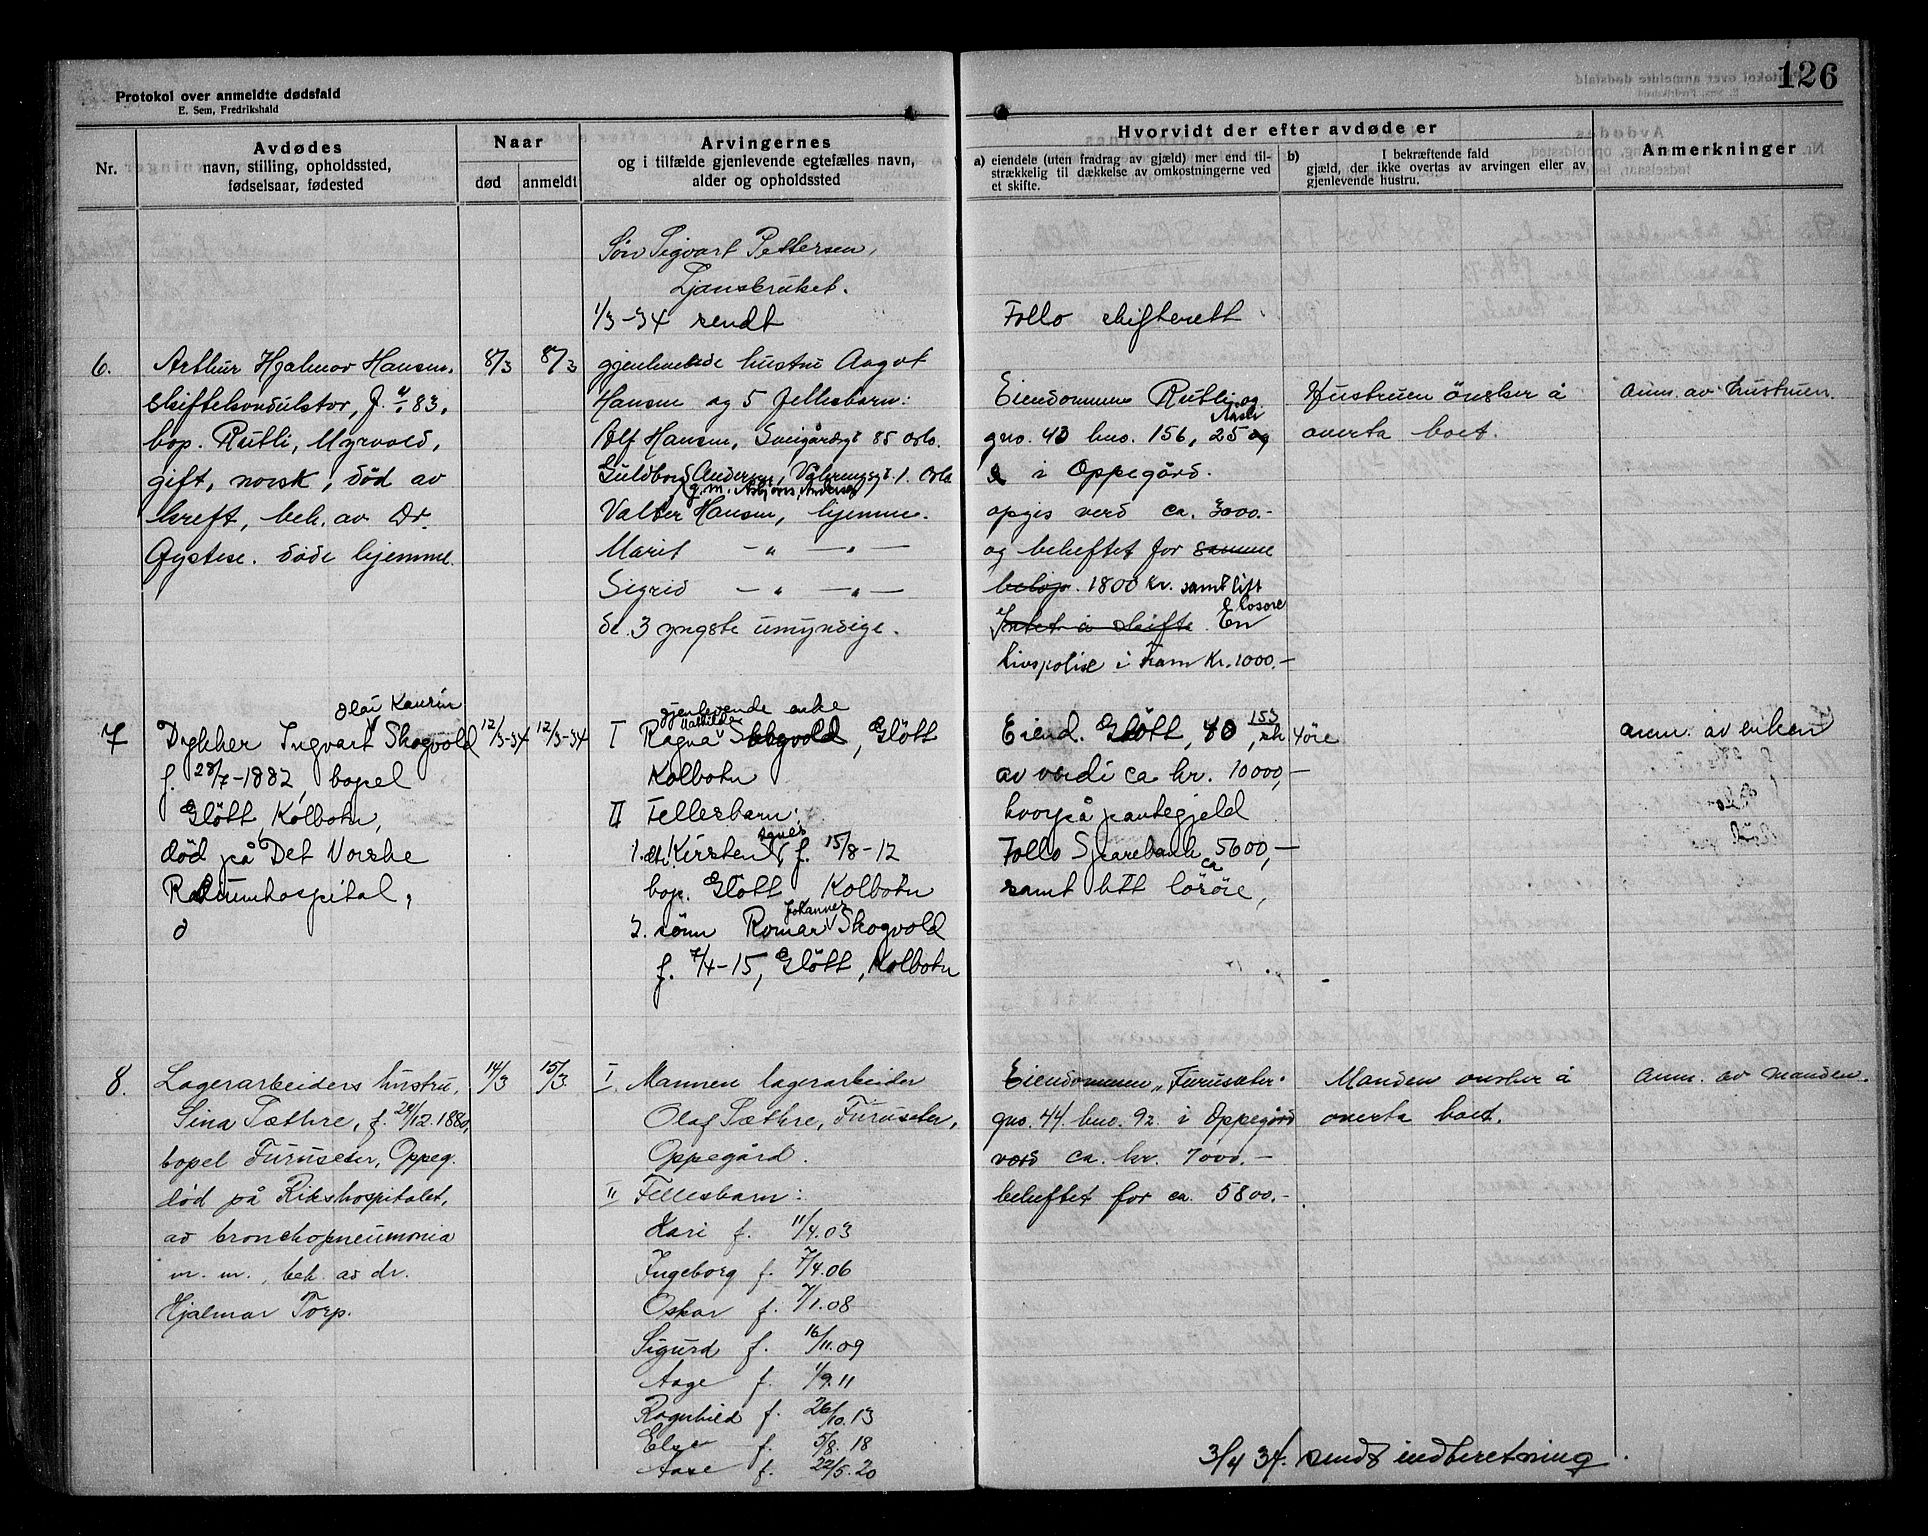 126
Protokol over anmeldte dødsfald
E. Sem, Fredrikshald
Nr.
Avdødes
navn, stilling, opholdssted,
fødselsaar, fødested
Naar
død
anmeldt
Arvingernes
og i tilfælde gjenlevende egtefælles navn,
alder og opholdssted
Hvorvidt der efter avdøde er
a) eiendele (uten fradrag av gjæld) mer end til-
strækkelig til dækkelse av omkostningerne ved
et skifte.
b) I bekræftende fald
gjæld, der ikke overtas av arvingen eller av
gjenlevende hustru.
Anmerkninger
Søn Sigvart Pettersen,
Ljansbruket.
1/3-34 sendt
Follo skifterett
6.
Arthur Hjalmar Hansen,
f. 83,
bop. Rutli, Myrvold,
gift, norsk, død av
kreft, beh. av Dr.
døde hjemme.
8/3
8/3
gjenlevende hustru Aagot
Hansen og 5 fellesbarn:
Alf Hansen, 85 Oslo.
Guldborg Andersen, 1. Oslo
g.m. Asbjørn Andersen
Valter Hansen, hjemme.
Marit — " — " —
Sigrid — " — " —
de 3 yngste umyndige.
Eiendommene Rutli og
gno. 43 bno. 156, 25 og
i Oppegård.
opgis verd ca. 3000.-
og beheftet for samme
beløp. 1800 Kr. samt litt
løsøre
Intet å skifte. En
livspolise i Fram Kr. 1000,-
Hustruen ønsker å
overta boet.
anm. av hustruen.
7
Olai Kaurin
Dykker Ingvart Skogvold
f. 28/7-1882, bopel
Gløtt, Kolbotn,
død på Det Norske
Radiumhospital,
12/3-34
12/3-34
gjenlevende enke
Mathilde
I Ragna Skogvold, Gløtt
Kolbotn
II Fellesbarn:
Agnes
1. dtr. Kirsten, f. 15/8-12
bop. Gløtt, Kolbotn
Johannes
2. sønn Romar Skogvold
f. 7/4-15, Gløtt, Kolbotn
Eiend. Gløtt, 40, 153,
av verdi ca kr. 10000,-
hvorpå pantegjeld
Follo Sparebank ca 5600,-
samt litt løsøre,
anm. av enken
8.
Lagerarbeiders hustru,
Sina Sæthre, f. 24/12.1880,
bopel Furuseter, Oppeg.
død på Rikshospitalet,
av bronchopneumonia
m. m., beh. av dr.
Hjalmar Torp.
14/3
15/3
I. Mannen lagerarbeider
Olaf Sæthre, Furuseter,
Oppegård.
II Fellesbarn:
Kari f. 11/4.03
Ingeborg f. 7/4.06
Oskar f. 7/1.08
Sigurd f. 16/11.09
Aage f. 1/9.11
Ragnhild f. 26/10.13
Else f. 5/8.18
Aase f. 22/5.20
Eiendommen "Furusæter"
gno. 44. bno. 92. i Oppegård
verd ca. kr. 7000.-
beheftet for ca. 5800.-
Manden ønsker å
overta boet.
anm. av manden.
3/4 34. sendt indberetning.